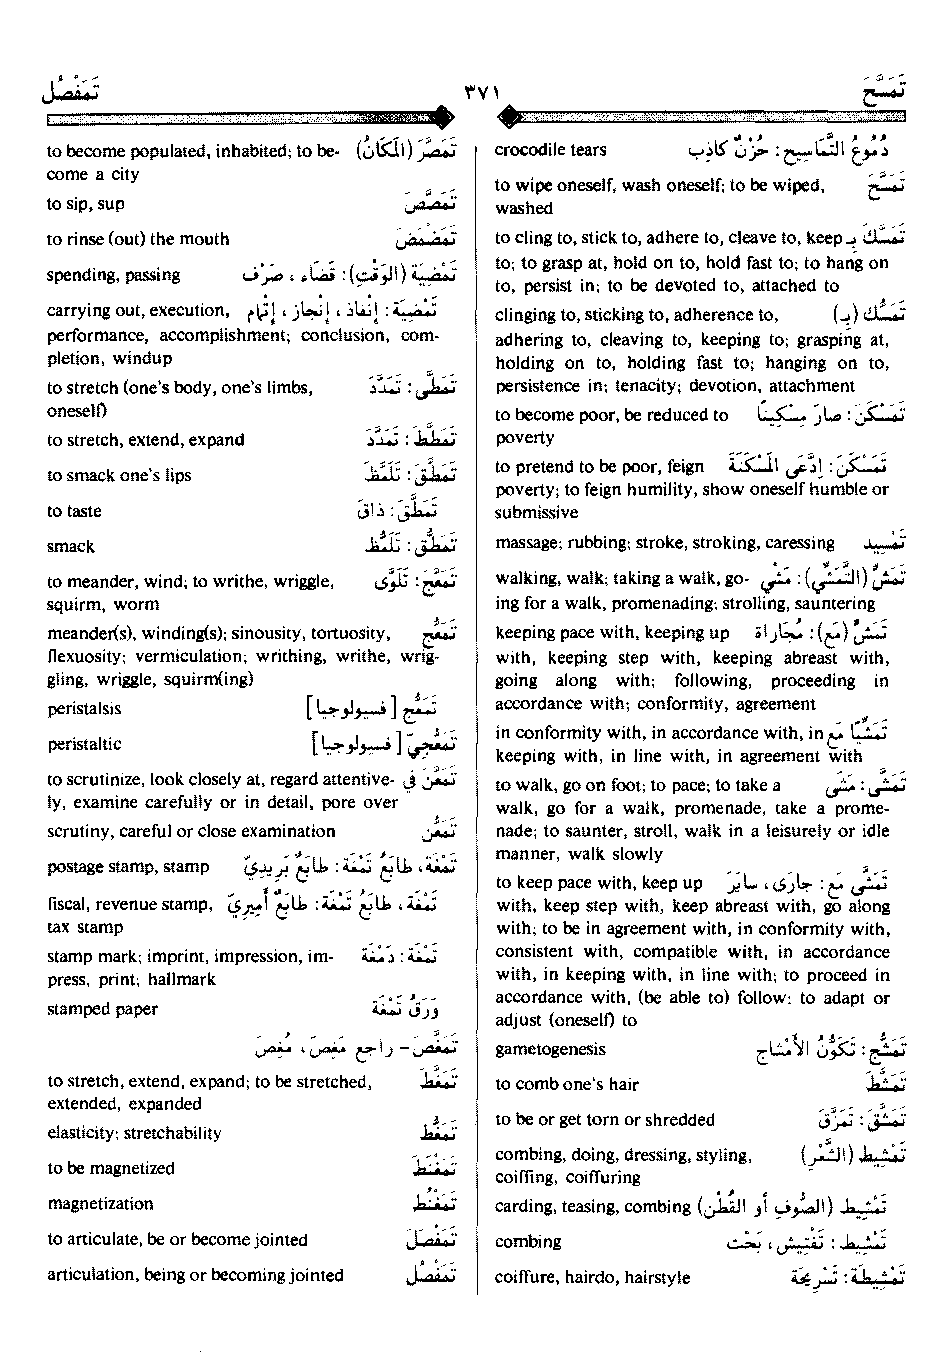 تَمَسَّحَ
٣٧١
تَمَفْصُل
crocodile tears دُمُوعُ التَّمَاسِيح : حُزْنٌ كاذِب
to wipe oneself, wash oneself; to be wiped, تَمَسَّحَ
washed
to cling to, stick to, adhere to, cleave to, keep تَمَسَّكَ بِـ
to; to grasp at, hold on to, hold fast to; to hang on
to, persist in; to be devoted to, attached to
clinging to, sticking to, adherence to, تَمَسُّك (بِـ)
adhering to, cleaving to, keeping to; grasping at,
holding on to, holding fast to; hanging on to,
persistence in; tenacity; devotion, attachment
to become poor, be reduced to تَمَسْكَنَ : صارَ مِسْكِينًا
poverty
to pretend to be poor, feign تَمَسْكَنَ : إدَّعَى المَسْكَنَة
poverty; to feign humility, show oneself humble or
submissive
massage; rubbing; stroke, stroking, caressing تَمْسِيد
walking, walk; taking a walk, go- تَمَشٍّ (التَّمَشِّي) : مَشْي
ing for a walk, promenading; strolling, sauntering
keeping pace with, keeping up تَمَشٍّ (مَعَ) : مُجَاراة
with, keeping step with, keeping abreast with,
going along with; following, proceeding in
accordance with; conformity, agreement
in conformity with, in accordance with, in تَمَشِّيًا مَعَ
keeping with, in line with, in agreement with
to walk, go on foot; to pace; to take a تَمَشَّى : مَشَى
walk, go for a walk, promenade, take a prome-
nade; to saunter, stroll, walk in a leisurely or idle
manner, walk slowly
to keep pace with, keep up تَمَشَّى مَعَ : جارَى ، سايَرَ
with, keep step with, keep abreast with, go along
with; to be in agreement with, in conformity with,
consistent with, compatible with, in accordance
with, in keeping with, in line with; to proceed in
accordance with, (be able to) follow; to adapt or
adjust (oneself) to
gametogenesis تَمَشُّج : تَكَوُّنُ الأَمْشاج
to comb one's hair تَمَشَّطَ
to be or get torn or shredded تَمَشَّقَ : تَمَزَّقَ
combing, doing, dressing, styling, تَمْشِيط (الشَّعْر)
coiffing, coiffuring
carding, teasing, combing تَمْشِيط (الصُّوفِ أو القُطْن)
combing تَمْشِيط : تَفْتِيش ، بَحْث
coiffure, hairdo, hairstyle تَمْشِيطَة : تَسْرِيحَة
to become populated, inhabited; to be- تَمَصَّرَ (المَكَانُ)
come a city
to sip, sup تَمَصَّصَ
to rinse (out) the mouth تَمَضْمَضَ
spending, passing تَمْضِيَة (الوَقْتِ) : قَضَاء ، صَرْف
carrying out, execution, تَمْضِيَة : إنْفاذ ، إنْجاز ، إتْمام
performance, accomplishment; conclusion, com-
pletion, windup
to stretch (one's body, one's limbs, تَمَطَّى : تَمَدَّدَ
oneself)
to stretch, extend, expand تَمَطَّطَ : تَمَدَّدَ
to smack one's lips تَمَطَّقَ : تَلَمَّظَ
to taste تَمَطَّقَ : ذاقَ
smack تَمَطُّق : تَلَمُّظ
to meander, wind; to writhe, wriggle, تَمَعَّجَ : تَلَوَّى
squirm, worm
meander(s), winding(s); sinousity, tortuosity, تَمَعُّج
flexuosity; vermiculation; writhing, writhe, wrig-
gling, wriggle, squirm(ing)
peristalsis تَمَعُّج [فسيولوجيا]
peristaltic تَمَعُّجِيّ [فسيولوجيا]
to scrutinize, look closely at, regard attentive- تَمَعَّنَ في
ly, examine carefully or in detail, pore over
scrutiny, careful or close examination تَمَعُّن
postage stamp, stamp تَمْغَة ، طابَعُ تَمْغَة : طابَعٌ بَرِيديّ
fiscal, revenue stamp, تَمْغَة ، طابَعُ تَمْغَة : طابَعٌ أَمِيرِيّ
tax stamp
stamp mark; imprint, impression, im- تَمْغَة : دَمْغَة
press, print; hallmark
stamped paper وَرَقُ تَمْغَة
تَمَغَّصَ - راجع مَغِصَ ، مُغِصَ
to stretch, extend, expand; to be stretched, تَمَغَّطَ
extended, expanded
elasticity; stretchability تَمَغُّط
to be magnetized تَمَغْنَطَ
magnetization تَمَغْنُط
to articulate, be or become jointed تَمَفْصَلَ
articulation, being or becoming jointed تَمَفْصُل